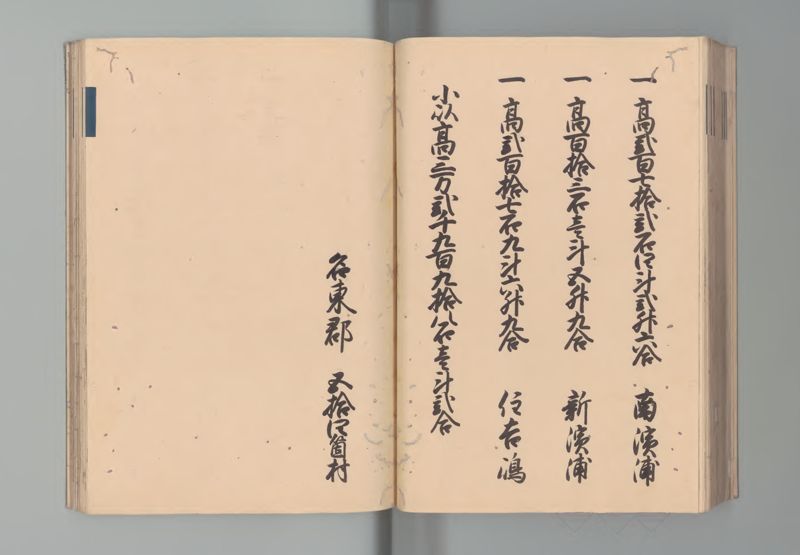 一高弐百七拾弐石四斗弐升六合 南濱浦
一高百拾三石壱斗五升九合 新濱浦
一高弐百拾七石九斗六升九合 住吉嶋
小以高三万弐千九百九拾八石壱斗弐合
名東郡 五拾四箇村